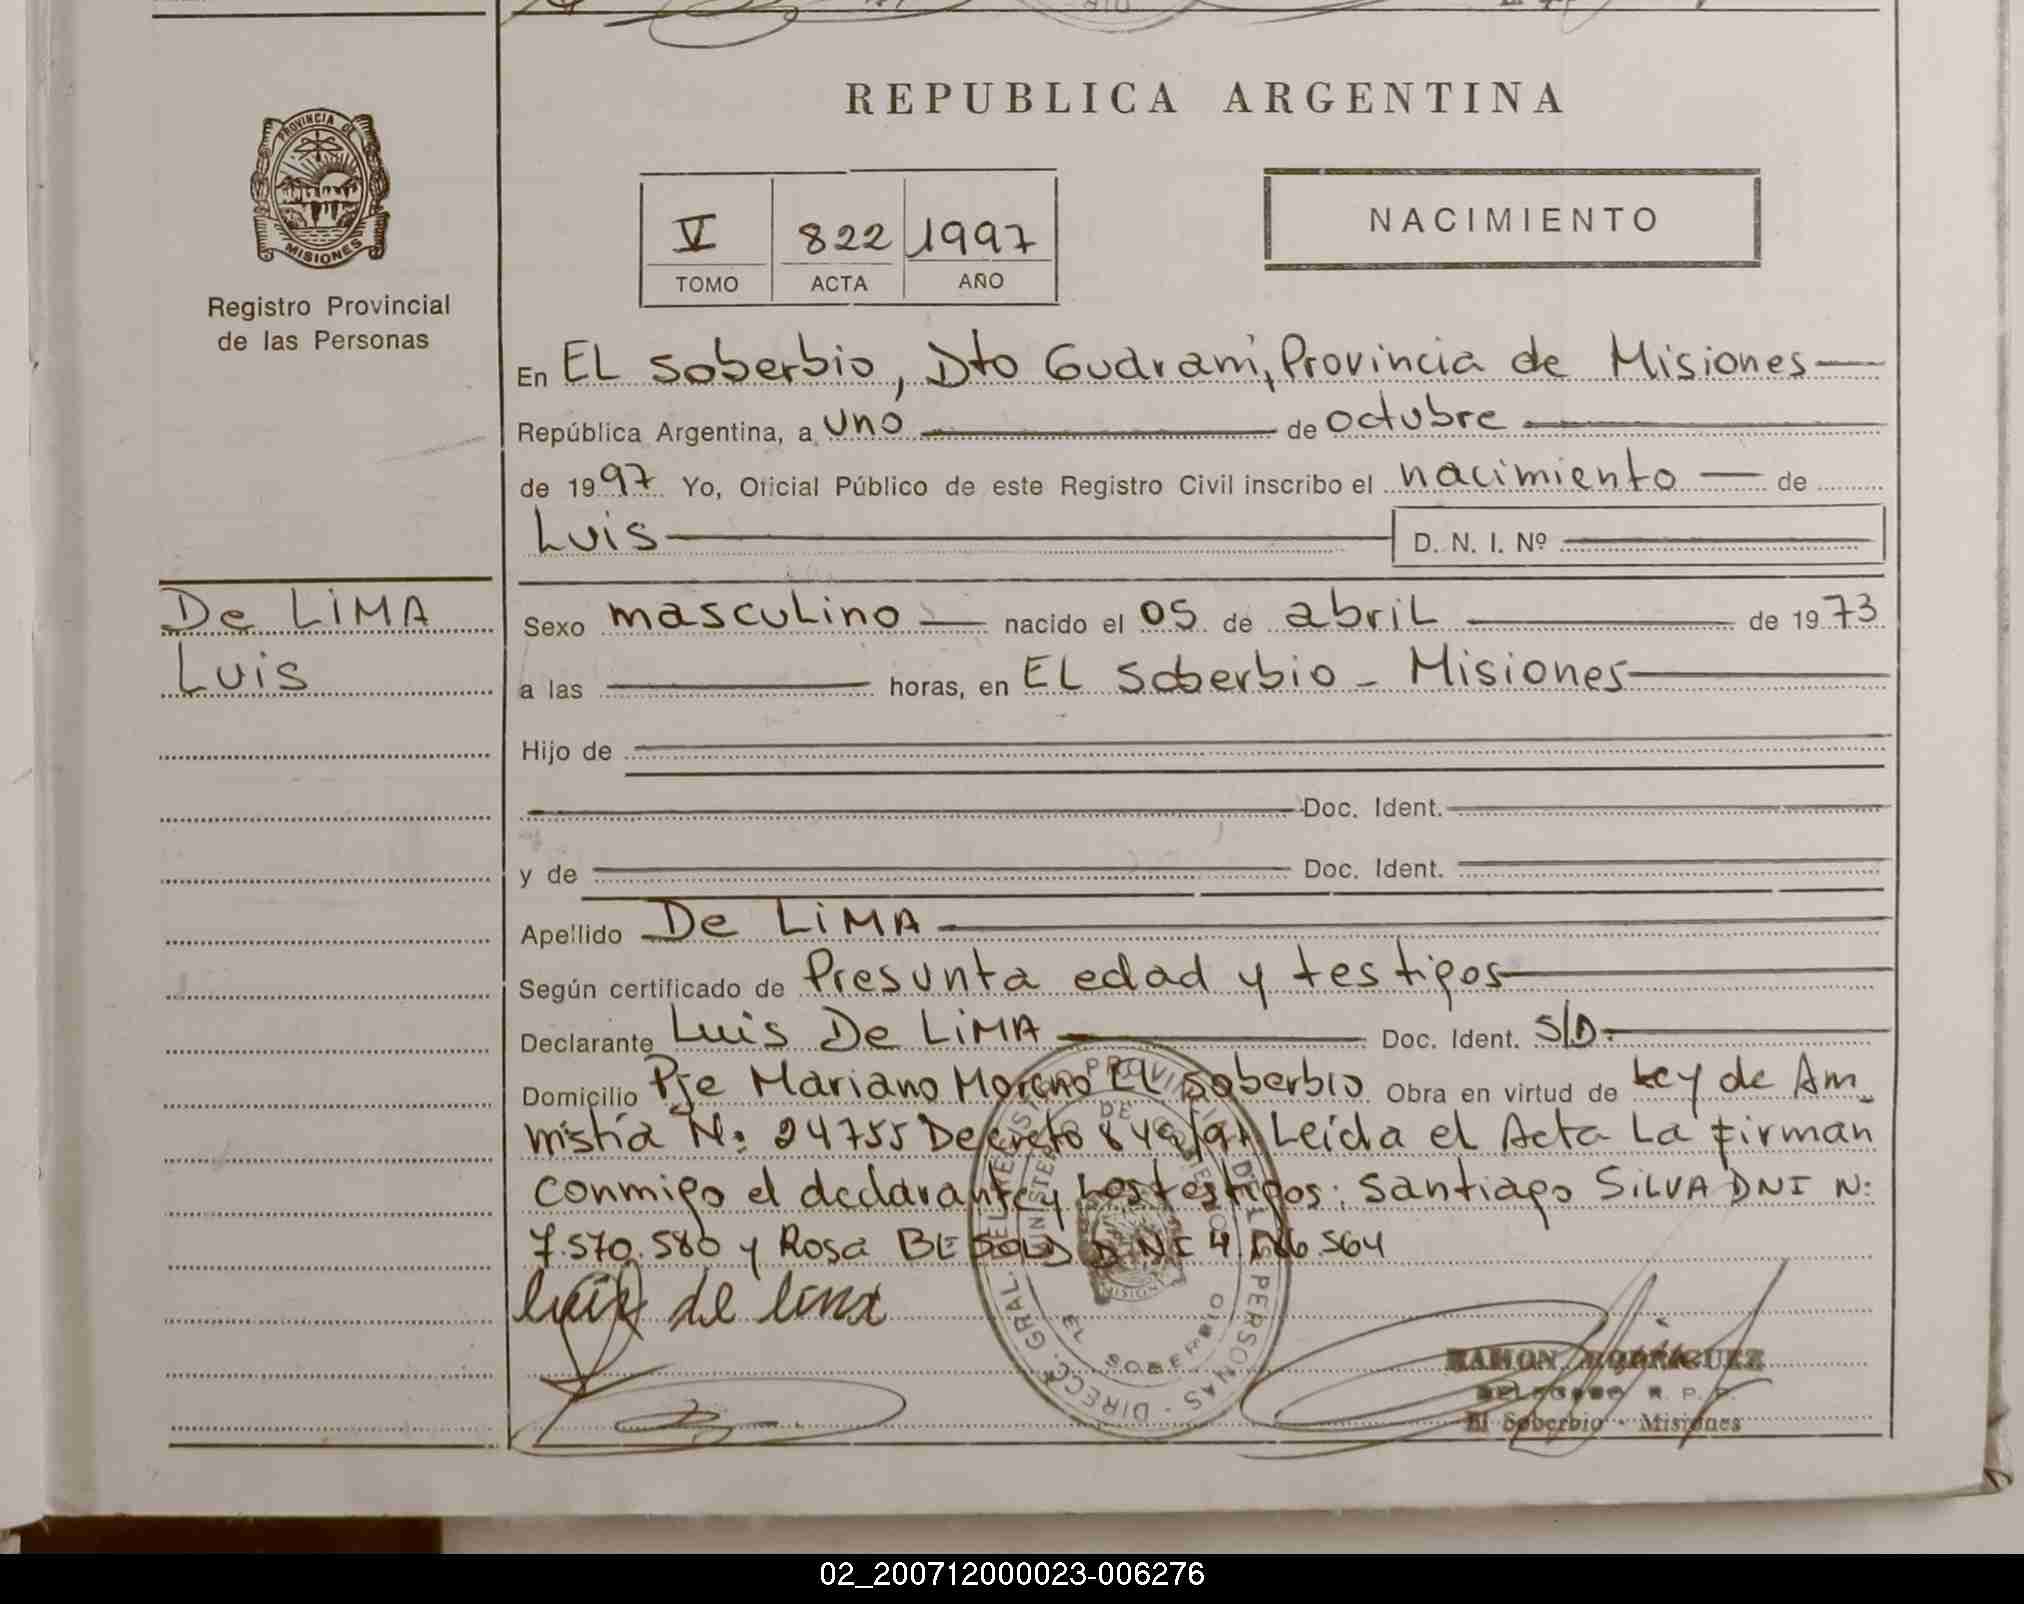 REPUBLICA ARGENTINA
PROVINCIA DE
MISIONES
Registro Provincial
de las Personas
V 822 1997
TOMO ACTA AÑO
NACIMIENTO
En EL Soberbio, Dto Guarani, Provincia de Misiones
República Argentina, a uno de octubre
de 1997 Yo, Oficial Público de este Registro Civil inscribo el nacimiento de
Luis D. N. I. Nº
De LiMA
Luis
Sexo masculino nacido el 05 de abril de 1973
a las horas, en EL Soberbio - Misiones
Hijo de
Doc. Ident.
y de Doc. Ident.
Apellido De LiMA
Según certificado de Presunta edad y testigos
Declarante Luis De LiMA Doc. Ident. S/D.
Domicilio Pje Mariano Moreno EL Soberbio Obra en virtud de Ley de Am
mistia N: 24755 Decreto Leida el Acta La firman
conmigo el declarante y Los testigos: Santiago SILVA DNI N:
7.570.580 y Rosa DNI
Luis de lima
DIRECC. GRAL. DEL REGISTRO PROVINCIAL DE LAS PERSONAS
MINISTERIO DE GOBIERNO
EL SOBERBIO
RAMON RODRIGUEZ
DELEGADO R. P. P.
El Soberbio - Misiones
02_200712000023-006276